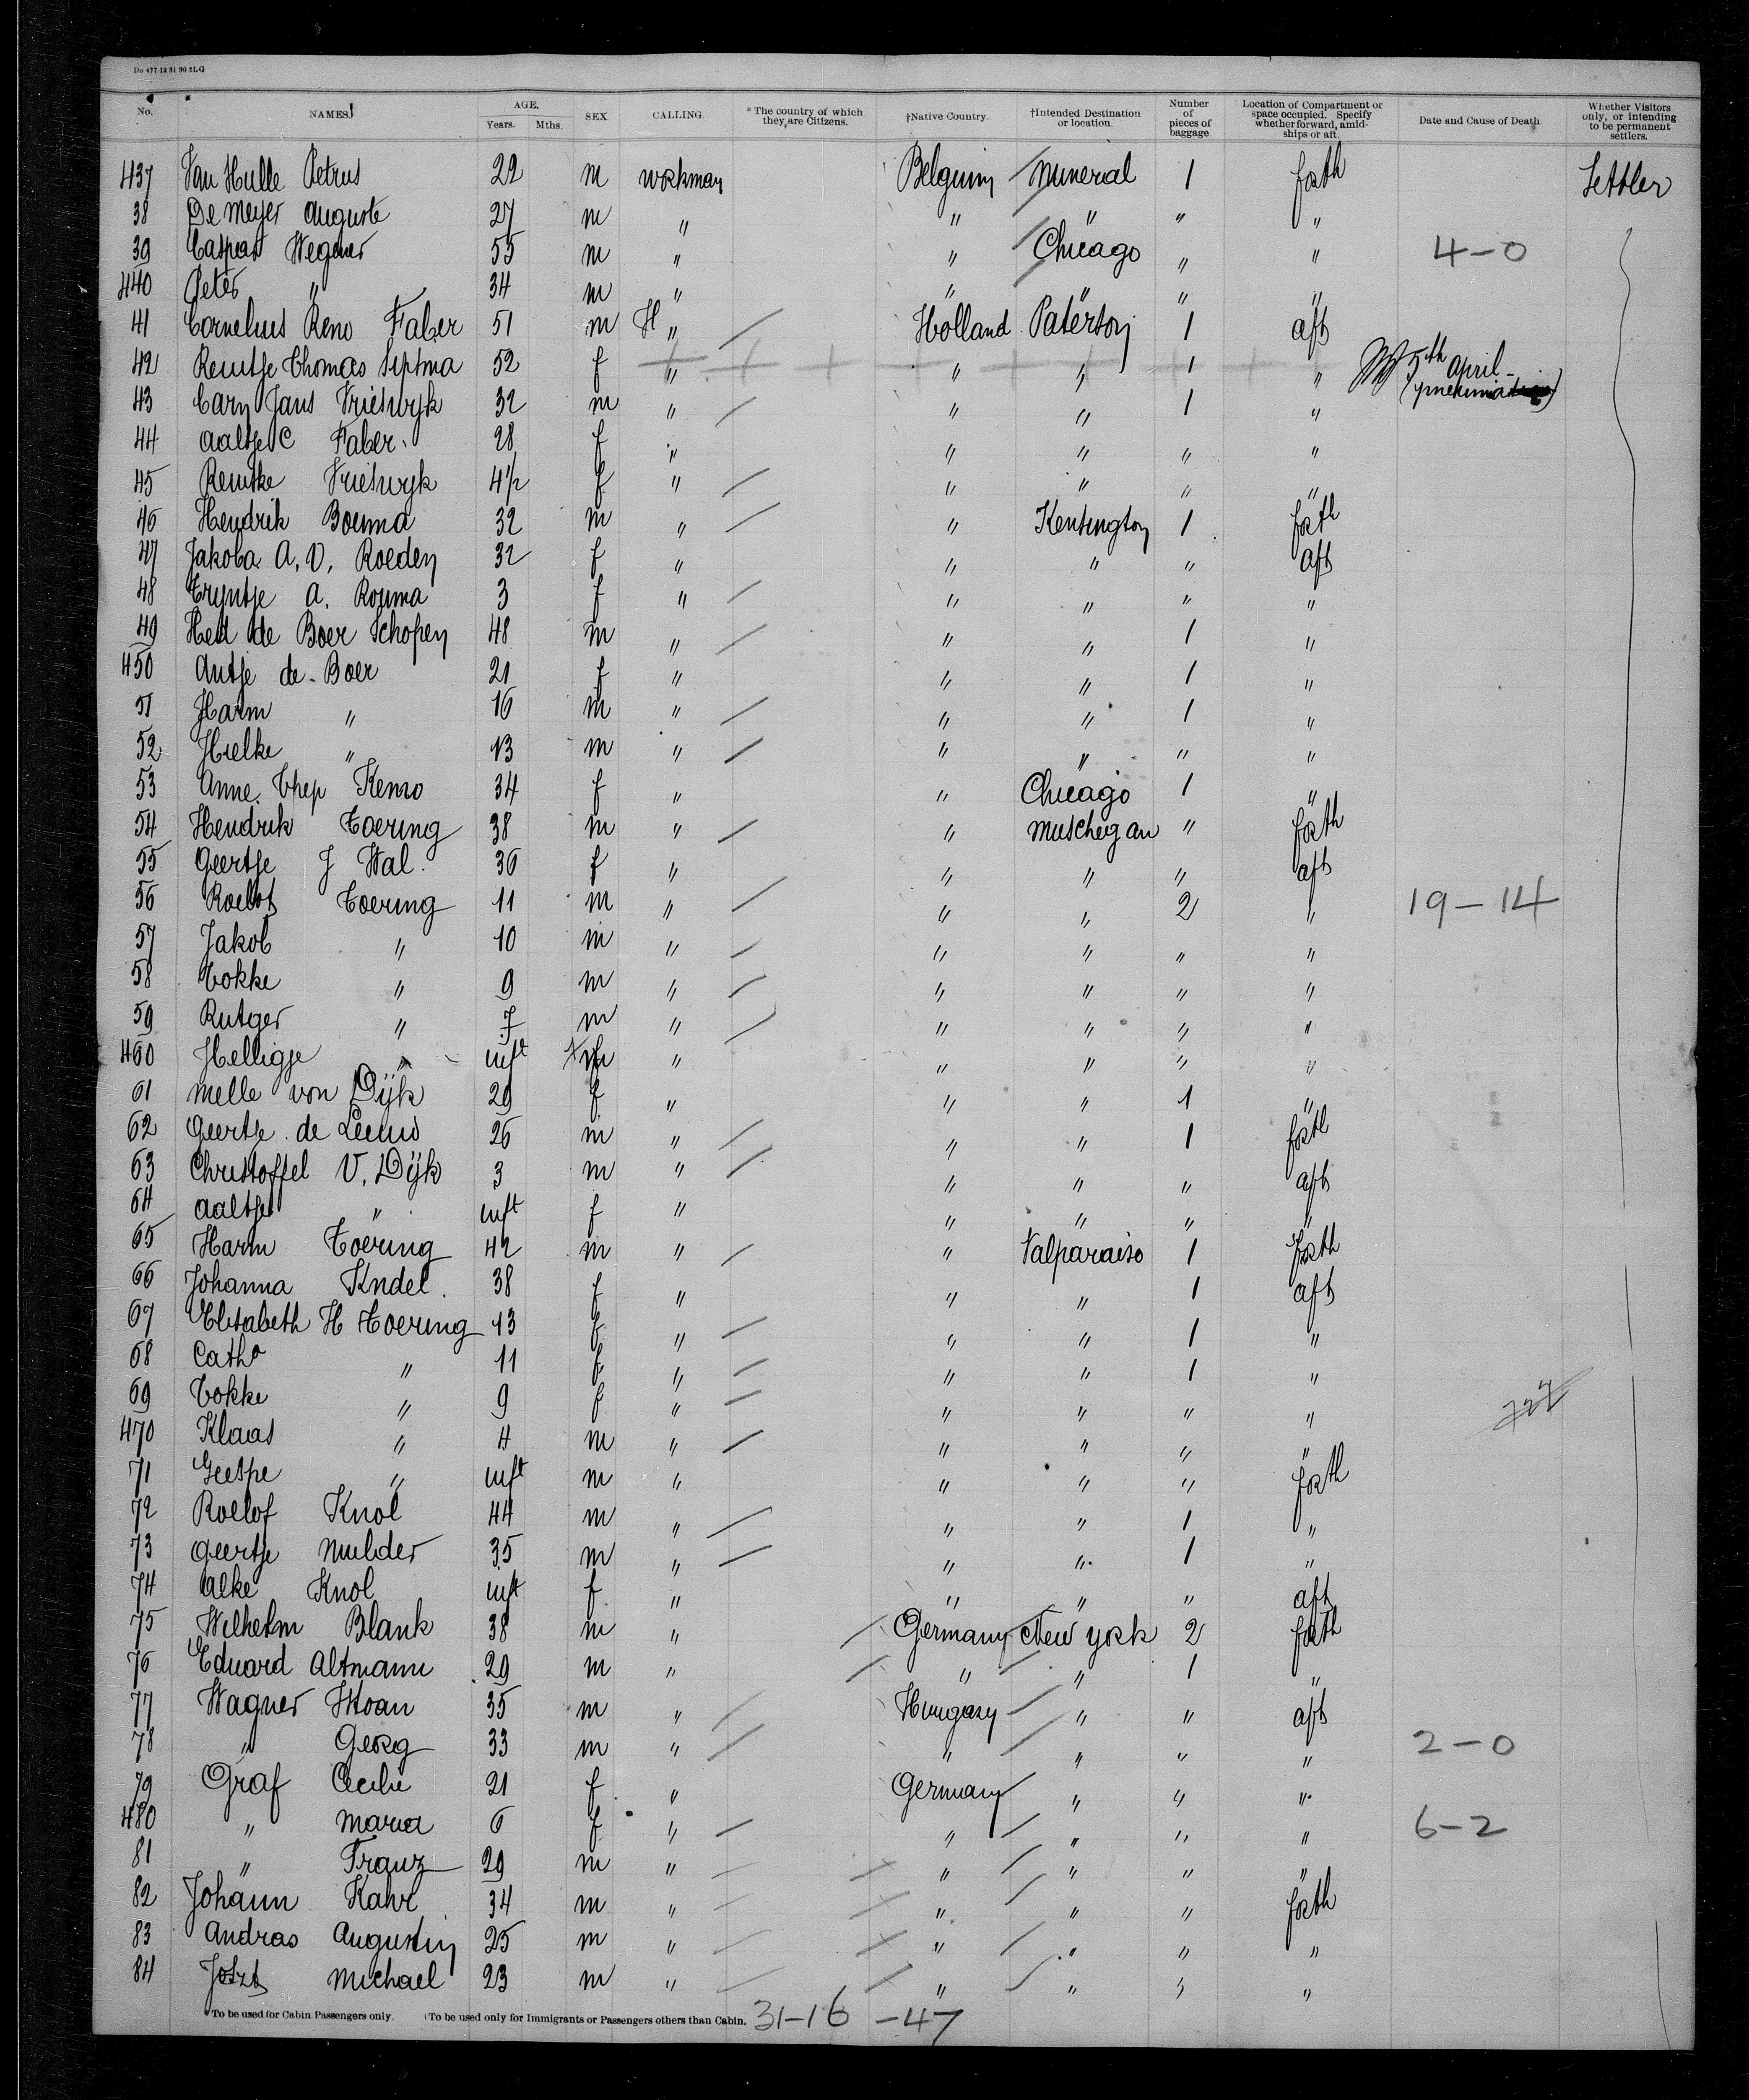 Do 477 12 31 90 2LG
No. NAMES. AGE. Years. Mths. SEX CALLING. *The country of which they are Citizens. †Native Country. †Intended Destination or location. Number of pieces of baggage. Location of Compartment or space occupied. Specify whether forward, amidships or aft. Date and Cause of Death Whether Visitors only, or intending to be permanent settlers.
437 Van Hulle Petrus 22 m workman Belgium Mineral 1 forth Settler
38 De Meyer Auguste 27 m " " " " "
39 Caspar Wegener 55 m " " Chicago " " 4-0
440 Peter " 34 m " " " " "
41 Cornelius Reno Faber 51 m H " Holland Paterson 1 aft
42 Reintje Thomas Siptma 52 f " " " 1 " 5th April
43 Jans Vrieswyk 32 m " " " 1 "
44 Aaltje C Faber 28 f " " " " "
45 Remtke Vrieswyk 4 1/2 f " " " " "
46 Hendrik Bouma 32 m " " Kensington 1 forth
47 Jakoba A. V. Roeden 32 f " " " " aft
48 Tryntje A. Rouma 3 f " " " " "
49 de Boer Schopen 48 m " " " 1 "
450 Antje de Boer 21 f " " " 1 "
51 Harm " 16 m " " " 1 "
52 Hielke " 13 m " " " " "
53 Anne Kemo 34 f " " Chicago 1 "
54 Hendrik Toering 38 m " " muschegan " forth
55 Geertje J Wal. 36 f " " " " aft
56 Roelof Toering 11 m " " " 2 " 19-14
57 Jakob " 10 m " " " " "
58 Tokke " 9 m " " " " "
59 Rutger " 7 m " " " " "
460 Helligje " inft " " " " "
61 Melle von Dijk 29 f " " " 1 "
62 Geertje de Leeuw 26 m " " " 1 forth
63 Christoffel V. Dijk 3 m " " " " aft
64 Aaltje " inft f " " " " "
65 Harm Toering 42 m " " Valparaiso 1 forth
66 Johanna Kndel 38 f " " " 1 aft
67 Elisabeth H Toering 13 f " " " 1 "
68 Catha " 11 f " " " 1 "
69 Tokke " 9 f " " " " "
470 Klaas " 4 m " " " " "
71 Geespe " inft m " " " " forth
72 Roelof Knol 44 m " " " 1 "
73 Geertje Mulder 35 m " " " 1 "
74 Alke Knol inft f " " " " aft
75 Wilhelm Blank 38 m " Germany New York 2 forth
76 Eduard Altmann 29 m " " " 1 "
77 Wagner 35 m " Hungary " " aft
78 " Georg 33 m " " " " " 2-0
79 Graf Cecilie 21 f " Germany " " "
480 " Maria 6 f " " " " " 6-2
81 " Franz 29 m " " " " "
82 Johann Kahr 34 m " " " " forth
83 Andras Augustin 25 m " " " " "
84 Michael 23 m " " " " "
*To be used for Cabin Passengers only. †To be used only for Immigrants or Passengers others than Cabin. 31-16 -47